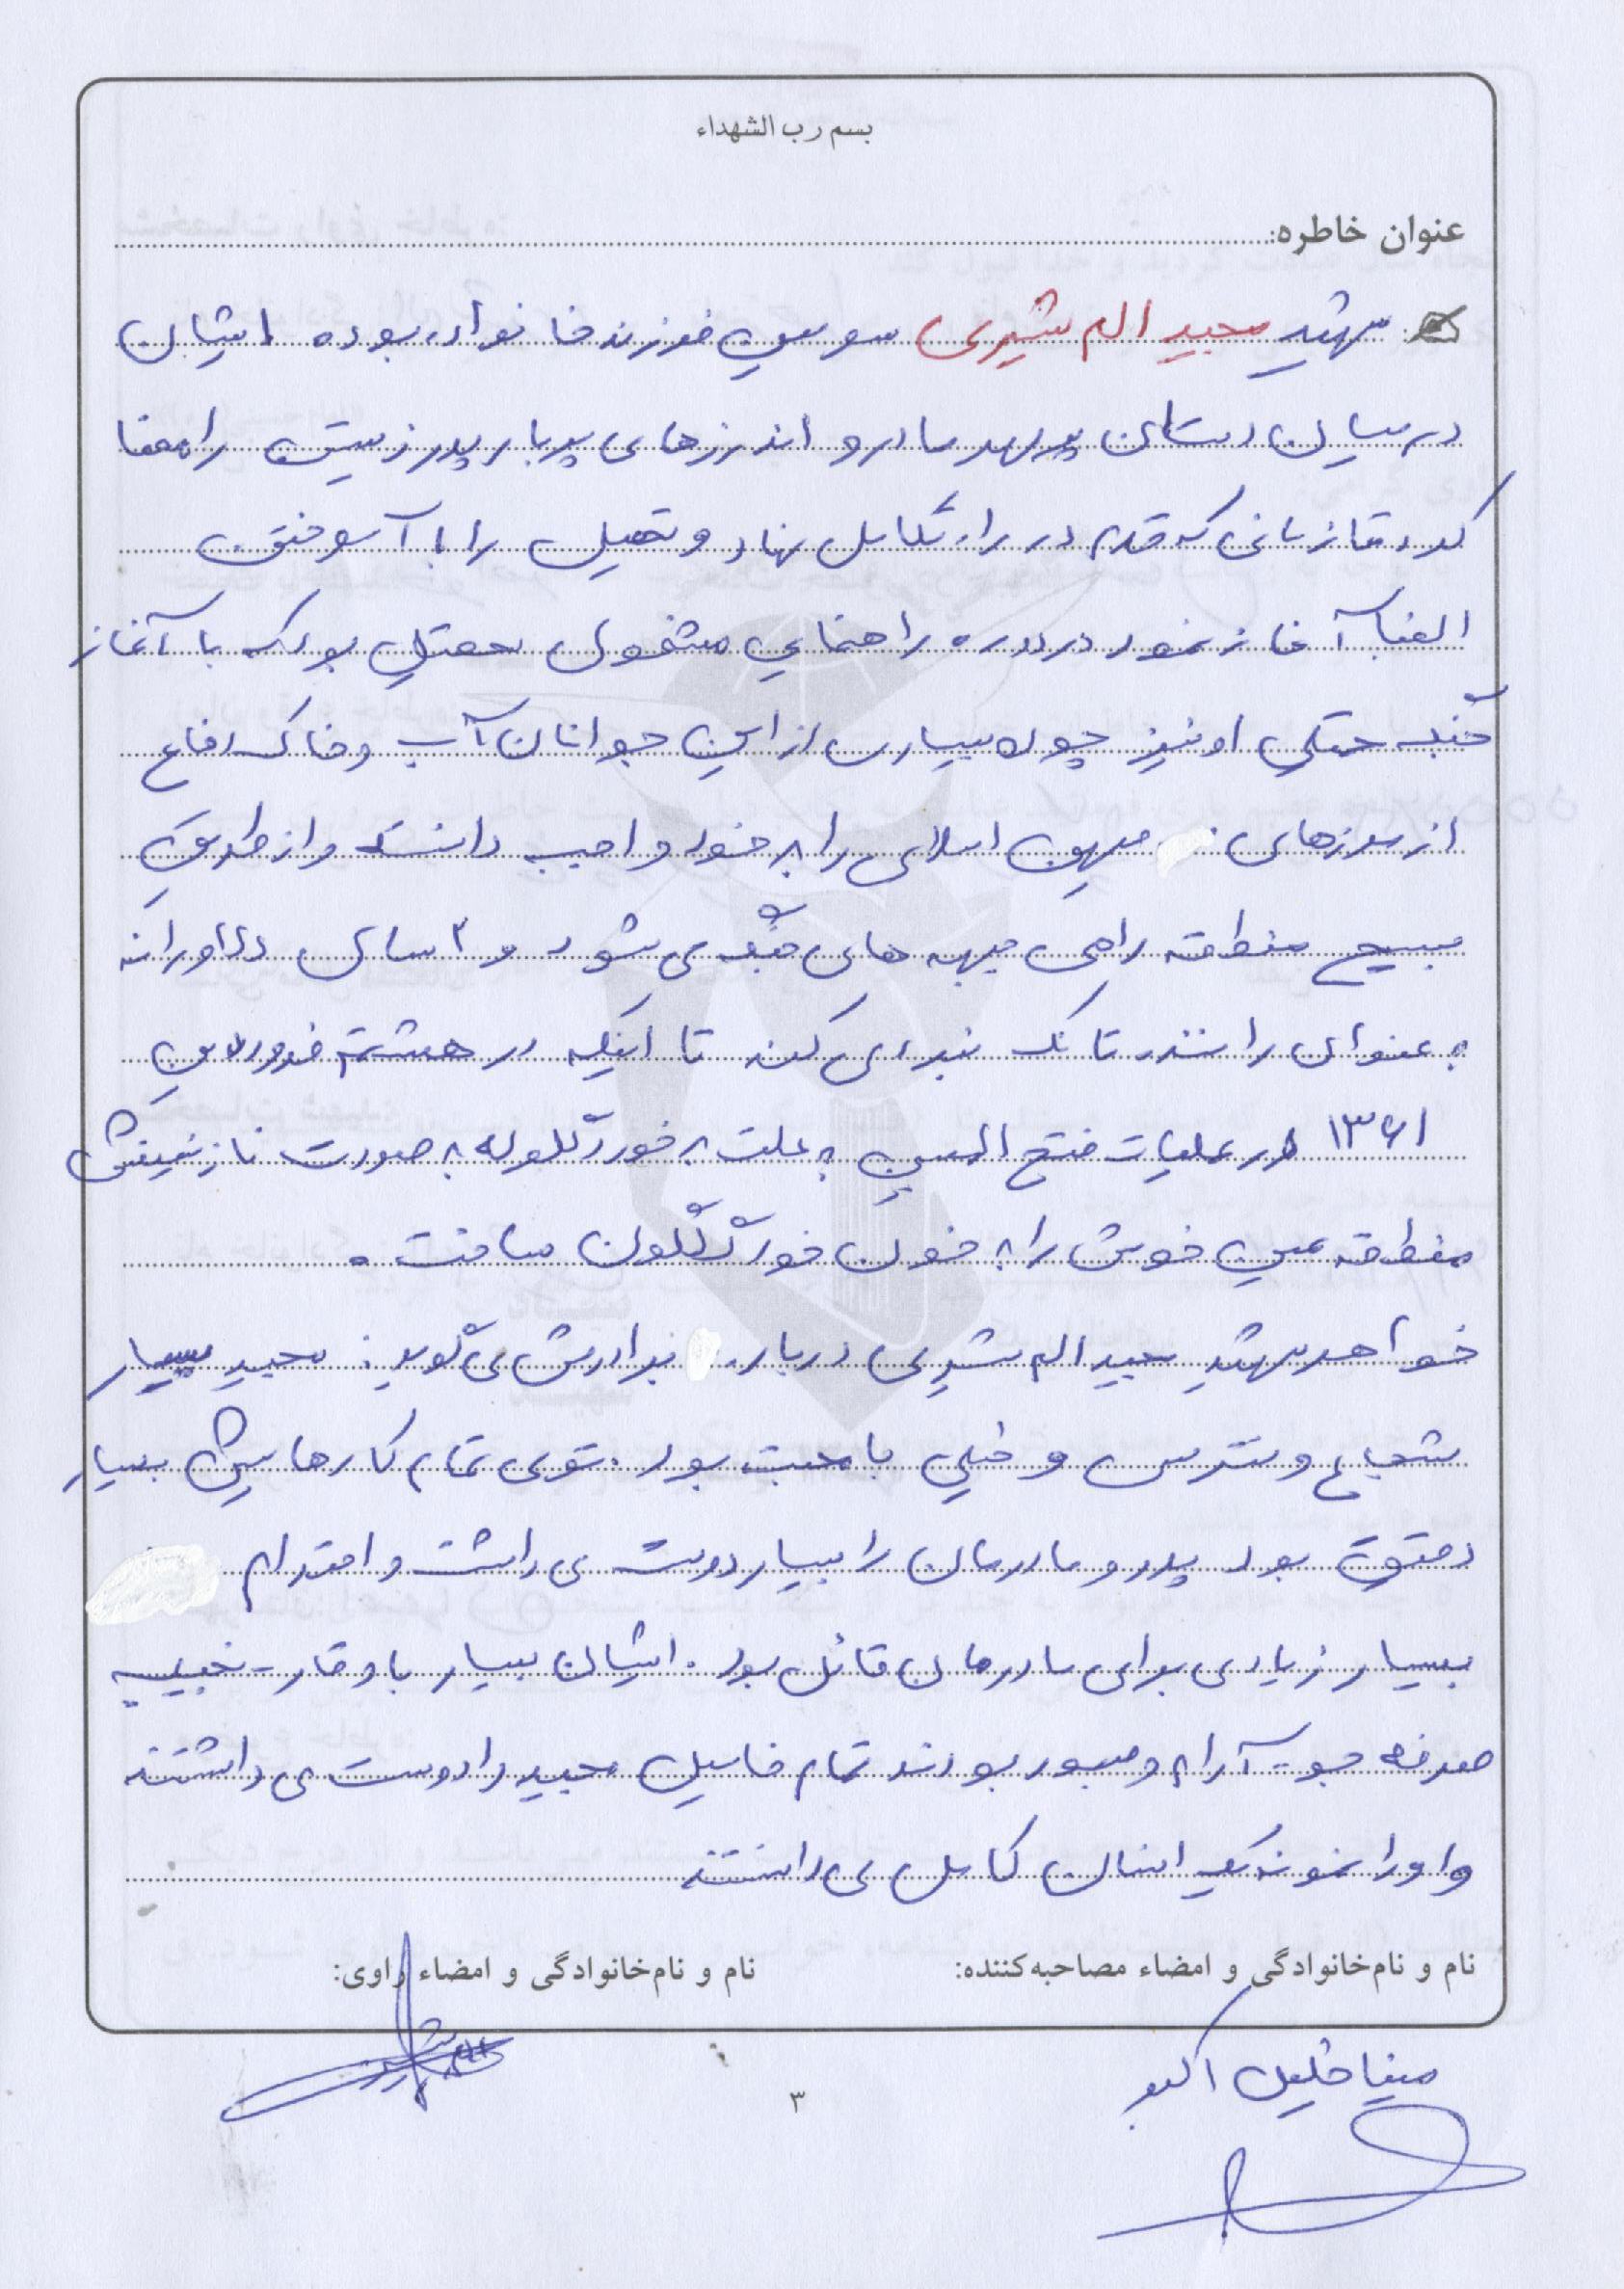 بسم رب الشهداء
عنوان خاطره:
شهید مجید الم شیری سومین فرزند خانواده بوده ایشان
در میان دستان پرمهر مادر و اندرزهای پربار پدر زیستن را معنا
کرده تا زمانی که قدم در راه تکامل نهاد و تحصیل را با آموختن
الفبا آغاز نمود در دوره راهنمایی مشغول تحصیل بود که با آغاز
جنگ تحمیلی او نیز چون بسیاری از این جوانان آب و خاک دفاع
از مرزهای میهن اسلامی را بر خود واجب دانسته و از طریق
بسیج منطقه راهی جبهه های جنگ می شود و ۲ سال دلاورانه
به عنوان راننده تانک نبرد می کند تا اینکه در هشتم فروردین
۱۳۶۱ در عملیات فتح المبین به علت برخورد گلوله به صورت نازنینش
منطقه عین خوش را به خون خود گلگون ساخت.
خواهر شهید مجید الم شیری درباره برادرش می گوید: مجید بسیار
شجاع و نترس و خیلی با محبت بود. توی تمام کارهایش بسیار
دقیق بود پدر و مادرمان را بسیار دوست می داشت و احترام
بسیار زیادی برای مادرمان قائل بود. ایشان بسیار با وقار - نجیب
صرفه جو - آرام و صبور بودند تمام فامیل مجید را دوست می داشتند
و او را نمونه یک انسان کامل می دانستند
نام و نام‌خانوادگی و امضاء مصاحبه‌کننده: نام و نام‌خانوادگی و امضاء راوی:
مینا خلیل اکبر
۳